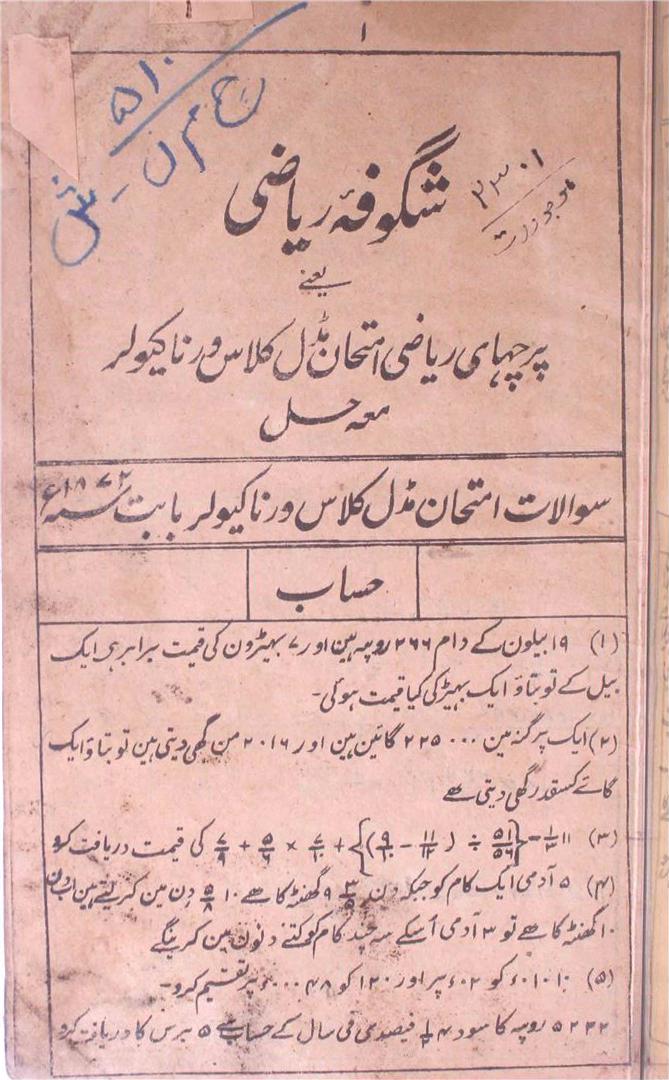 ۱
۵۱۰
ح م ن - ش
شگوفۂ ریاضی
۲۳۰۱
یعنے
پرچہای ریاضی امتحان مڈل کلاس ورناکیولر
معہ حل
سوالات امتحان مڈل کلاس ورناکیولر بابت سنہ ۱۸۷۲ء
حساب
(۱) ۱۹ بیلون کے دام ۲۶۶ روپیہ ہین اور ۷ بہیڑون کی قیمت برابر ہی ایک
بیل کے تو بتاؤ ایک بہیڑ کی کیا قیمت ہوئی-
(۲) ایک پرگنہ مین ۲۲۵۰۰۰ گائین ہین اور ۲۰۱۶ من گھی دیتی ہین تو بتاؤ ایک
گائے کسقدر گھی دیتی ہے
(۳) کی قیمت دریافت کرو
(۴) ۵ آدمی ایک کام کو جبکہ دن ۹ ۳/۵ گھنٹہ کا ہے ۱۰ ۵/۸ دن مین کرلیتے ہین
۱۰ گھنٹہ کا ہے تو ۳ آدمی اُسکے سہ چند کام کو کتنے دنون مین کرینگے
(۵) کو ۰۲ء پر اور ۱۲۰ کو پر تقسیم کرو-
۵۲۳۲ روپیہ کا سود فیصدی فی سال کے حساب سے ۵ برس کا دریافت کرو